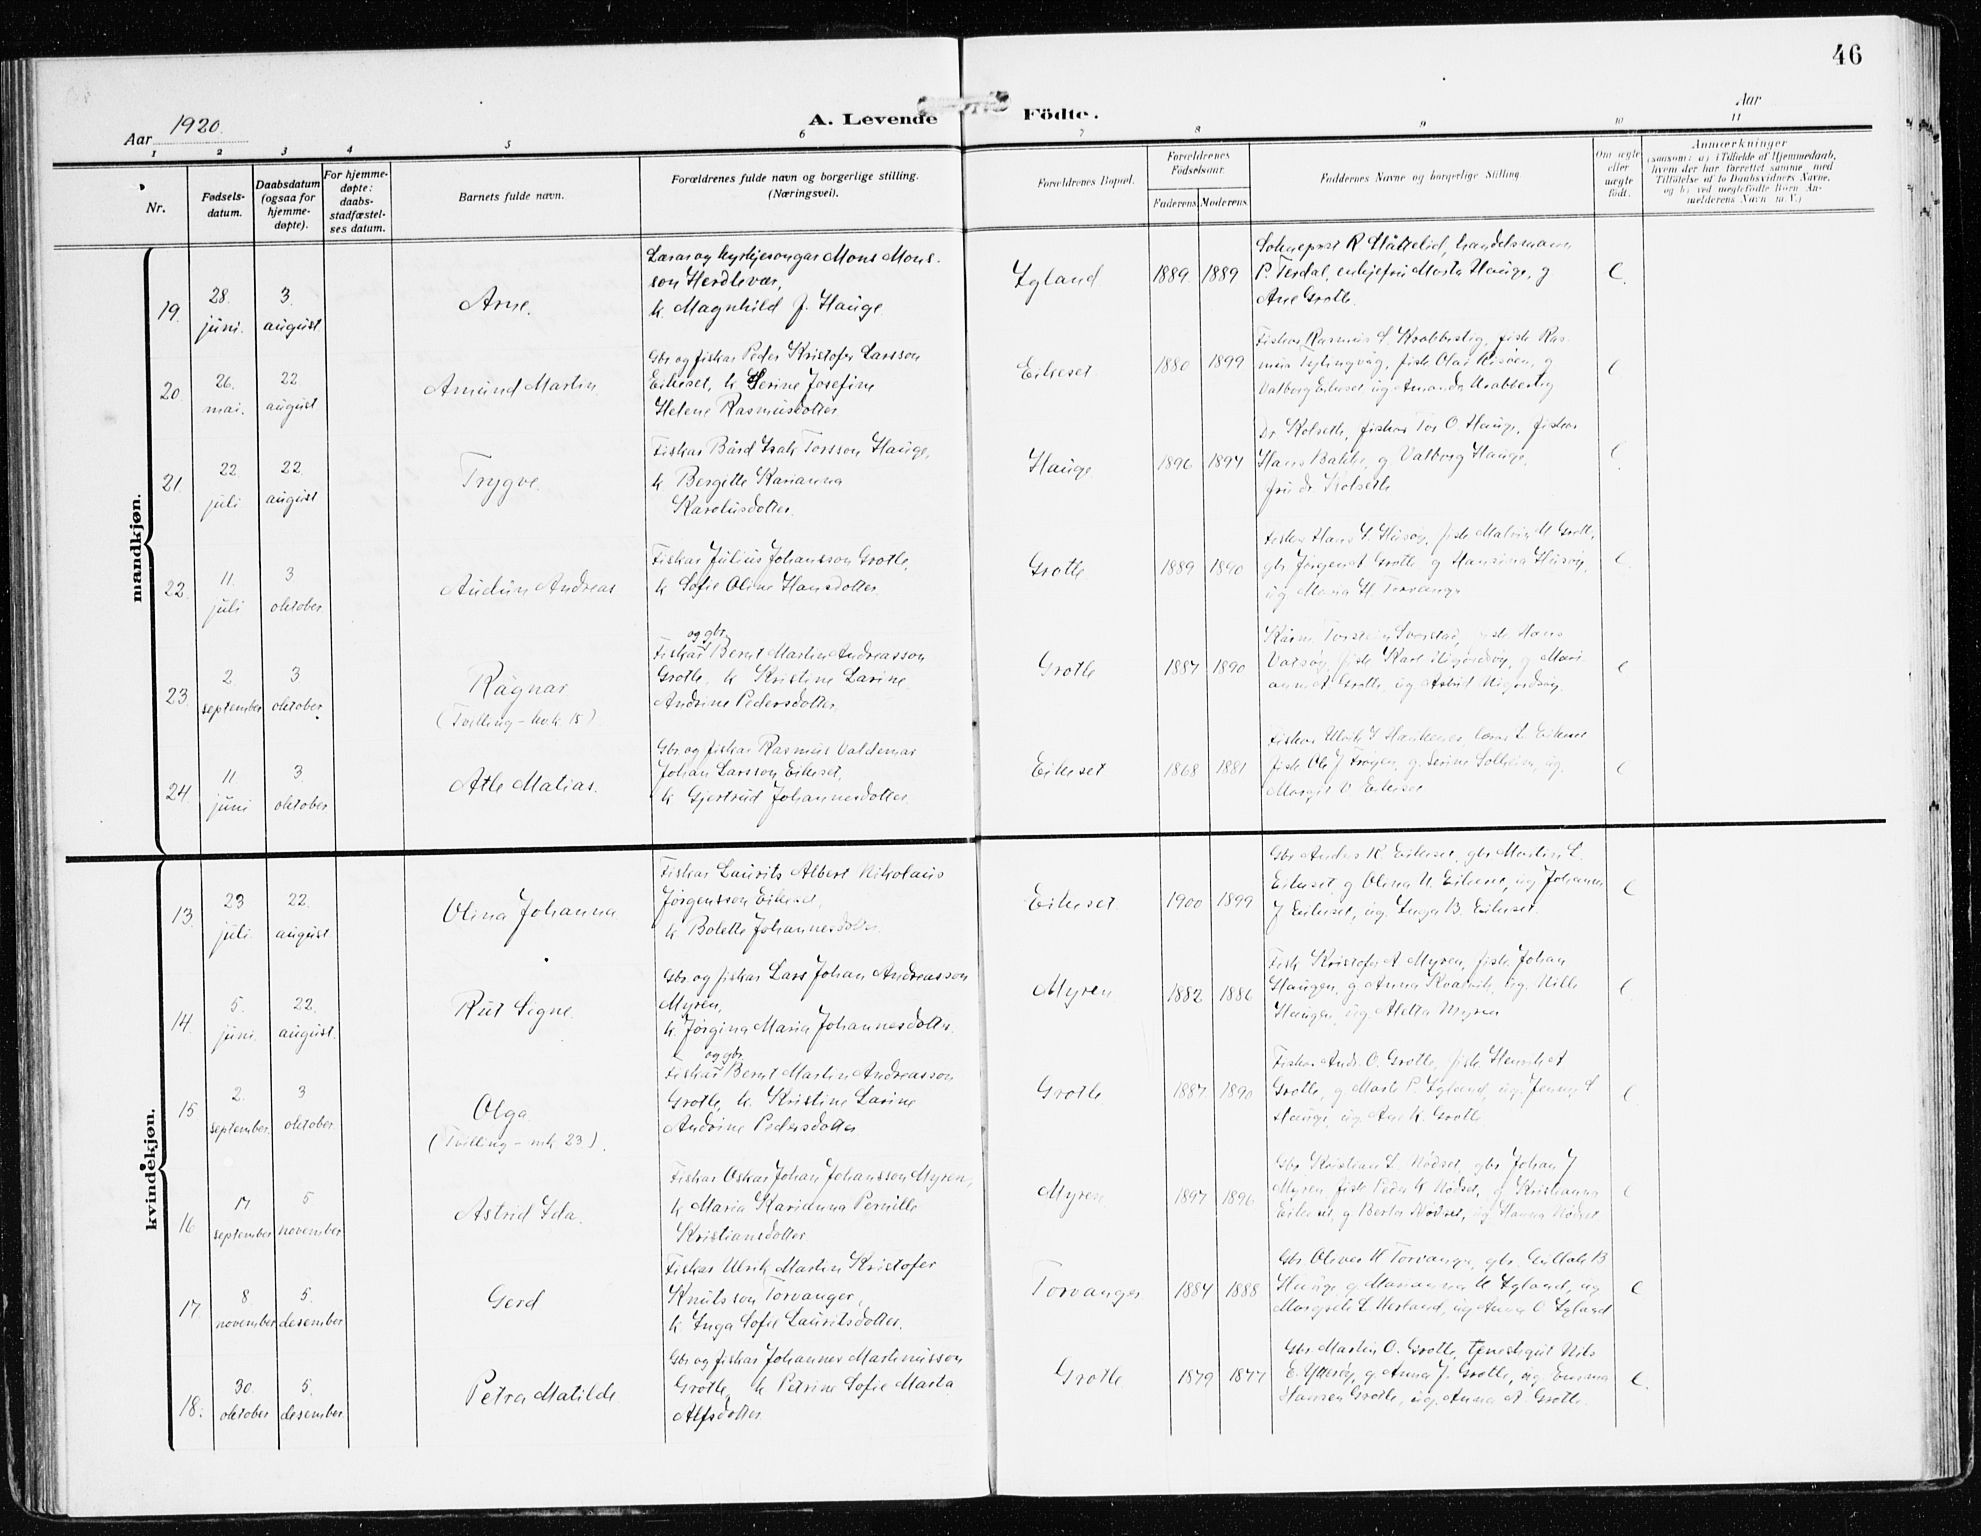 46
Aar 1920.
A. Levende Födte.
Aar
1 2 3 4 5 6 7 8 9 10 11
Nr.
Fødsels-
datum.
Daabsdatum
(ogsaa for
hjemme-
døpte).
For hjemme-
døpte:
daabs-
stadfæstel-
ses datum.
Barnets fulde navn.
Forældrenes fulde navn og borgerlige stilling.
(Næringsvei).
Forældrenes Bopæl.
Forældrenes
Fødselsaar.
Faderens. Moderens.
Faddernes Navne og borgerlige Stilling.
Om ægte
eller
uægte
født.
Anmærkninger
(saasom: a) i Tilfælde af Hjemmedaab,
hvem der har forrettet samme, med
Tilføielse af to Daabsvidners Navne,
og b) ved uægtefødte Børn An-
melderens Navn m. V.)
mandkjøn.
19.
28.
juni.
3.
august
Arne.
Lærar og kyrkjesongar Mons Mons-
son Herdlevær,
k. Magnhild J. Hauge.
Lgland
1889. 1889
Sokneprest R. handelsmann
P. Terdal, enkjefru Marta Hauge, g
Ane Grotle.
e.
20.
26.
mai.
22
august
Amund Martin.
Gbr og fiskar Peder Kristofer Larsson
Eikeset, k Serine Josefine
Helene Rasmusdotter
Eikeset
1880 1899
Fiskar Rasmus S. Krabbestig, fisk Ras-
mus fisk Olai g
Valborg Eikeset ug Amanda Krabbestig
e
21.
22
juli
22.
august
Trygve.
Fiskar Bård Isak Torsson Hauge,
k Bergitte Karianna
Karolusdotter.
Hauge
1896 1897
Dr. Kolseth, fiskar Tor O. Hauge, fiskar
Hans Bakke, g Valborg Hauge,
fru dr. Kolseth
e
22.
11.
juli
3
oktober
Audun Andreas
Fiskar Julius Johansson Grotle,
k Sofie Oline Hansdotter.
Grotle
1889 1890
Fiskar Hans L. Husøy, fisk Malvin M Grotle,
gbr Jørgen A Grotle g Hansina Husøy,
ug Maria H. Torvanger
e.
23.
2
september
3
oktober.
Ragnar
(Tvilling - kvk. 15)
og gbr
Fiskar Bernt Martin Andreasson
Grotle, k Kristine Larine
Andrine Pedersdotter.
Grotle
1887 1890
Torstein fisk Hans
fisk Karl g Mari-
anne A Grotle, ug
e
24.
11.
juni
3.
oktober
Atle Matias.
Gbr og fiskar Rasmus Valdemar
Johan Larsson Eikeset,
k Gjertrud Johannesdotter.
Eikeset
1868 1881
Fiskar Ulrik L Eikeset
fisk Ole J g. Serine Solheim, ug.
Margit O Eikeset
e
kvindekjøn.
13.
23
juli
22.
august.
Olina Johanna
Fiskar Laurits Albert Nikolaus
Jørgensson Eikeset,
k Bolette Johannesdotter
Eikeset.
1900 1899
Gbr Anders K. Eikeset, gbr Martin L.
Eikeset g Olina N. Eikeset, ug Johanna
J Eikeset, ug. Inga B. Eikeset.
e
14
5.
juni.
22.
august.
Rut Signe.
Gbr og fiskar Lars Johan Andreasson
Myren,
k. Jørgina Maria Johannesdotter.
Myren
1882 1886
Fisk Kristofer A Myren, fisk Johan
Haugen, g Anna ug. Nille
Haugen, ug Aletta Myren
e.
15
2.
september.
3
oktober.
Olga
(Tvilling - mk 23).
og gbr.
Fiskar Bernt Martin Andreasson
Grotle, k. Kristine Larine
Andrine Pedersdotter
Grotle
1887. 1890
Fiskar Andr. O. Grotle, fisk Henrik A
Grotle, g Marte P. Lgland, ug. Jenny L
Hauge, ug. Ane K. Grotle
e.
16
17
september
5
november.
Astrid Ida.
Fiskar Oskar Johan Johansson Myren,
k Maria Karianna Pernille
Kristiansdotter
Myren
1897 1896
Gbr. Kristian L. Nödset, gbr Johan J
Myren, fisk Peder K Nödset, g Kristianna
Eikeset, g Berta Nödset, ug Hanna Nödset
e
17.
8.
november
5.
desember
Gerd
Fiskar Ulrik Martin Kristofer
Knutsson Torvanger,
k. Inga Sofie Lauritsdotter.
Torvanger
1884 1888
Gbr Oliver K Torvanger, gbr. B
Hauge, g Marianna K Lgland, ug
Margrete L ug Anna O Lgland
e
18.
30.
oktober
5.
desember.
Petra Matilde
Gbr og fiskar Johannes Martinusson
Grotle, k Petrine Sofie Marta
Alfsdotter
Grotle.
1879 1877
Gbr. Martin O. Grotle, Nils
E. g Anna J. Grotle, ug. Emma
Hansen Grotle, ug. Anna A. Grotle.
e.